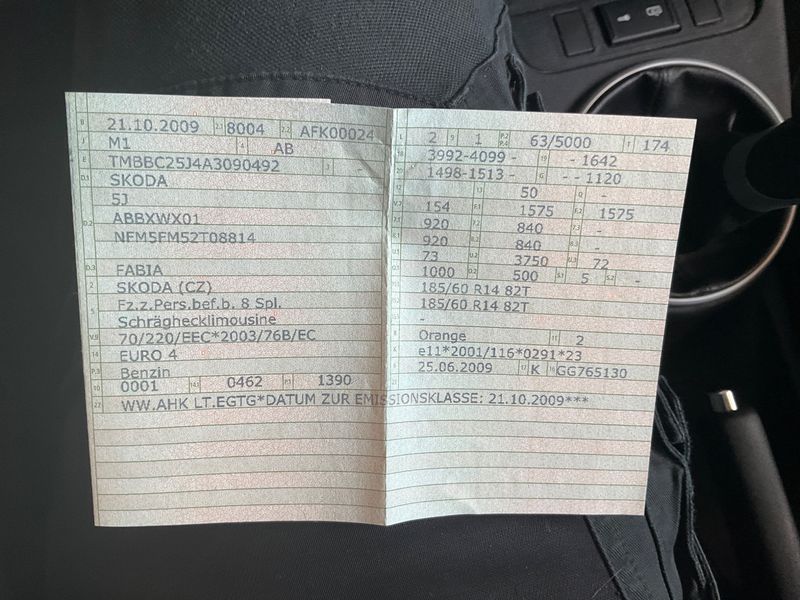 B 21.10.2009 2.1 8004 2.2 AFK00024
J M1 4 AB
E TMBBC25J4A3090492 3 -
D.1 SKODA
5J
D.2 ABBXWX01
NFM5FM52T08814
D.3 FABIA
2 SKODA (CZ)
5 Fz.z.Pers.bef.b. 8 Spl.
Schräghecklimousine
V.9 70/220/EEC*2003/76B/EC
14 EURO 4
P.3 Benzin
10 0001 14.1 0462 P.1 1390
22 WW.AHK LT.EGTG*DATUM ZUR EMISSIONSKLASSE: 21.10.2009***
L 2 9 1 P.2 P.4 63/5000 T 174
18 3992-4099 - 19 - 1642
20 1498-1513 - G - - 1120
12 - 13 50 Q -
V.7 154 F.1 1575 F.2 1575
7.1 920 7.2 840 7.3 -
8.1 920 8.2 840 8.3 -
U.1 73 U.2 3750 U.3 72
O.1 1000 O.2 500 S.1 5 S.2 -
15.1 185/60 R14 82T
15.2 185/60 R14 82T
15.3 -
R Orange 11 2
K e11*2001/116*0291*23
6 25.06.2009 17 K 16 GG765130
21